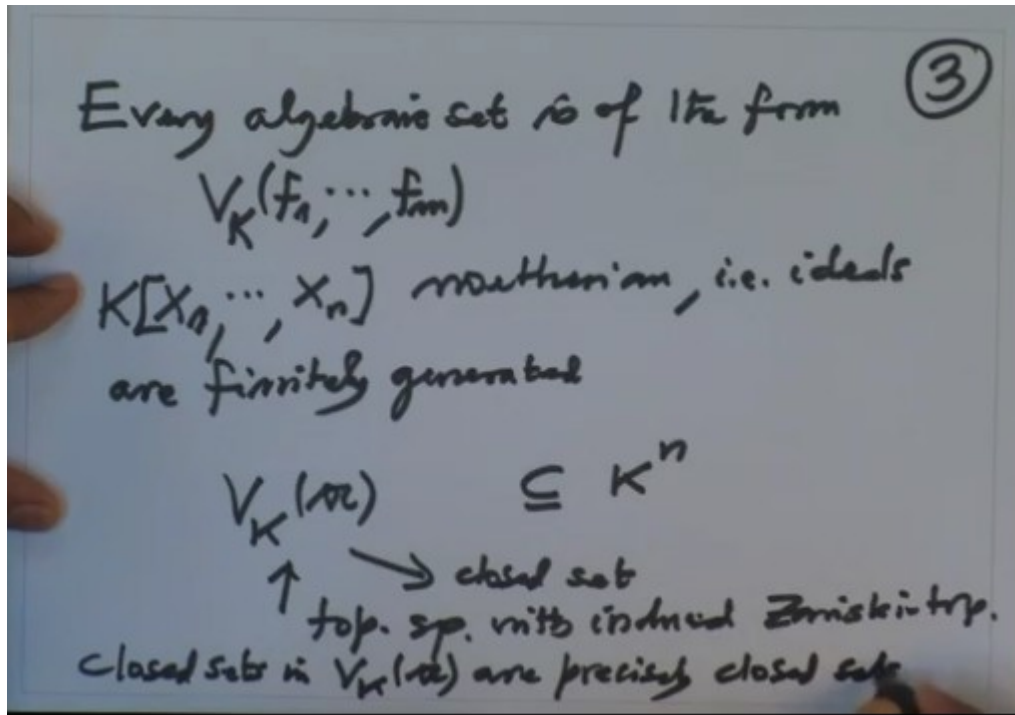 ③
Every algebraic set is of the form
V_K(f_1, ..., f_m)
K[X_1, ..., X_n] noetherian, i.e. ideals
are finitely generated
V_K(𝔞) ⊆ K^n
↑ → closed set
top. sp. with induced Zariski top.
Closed sets in V_K(𝔞) are precisely closed sets